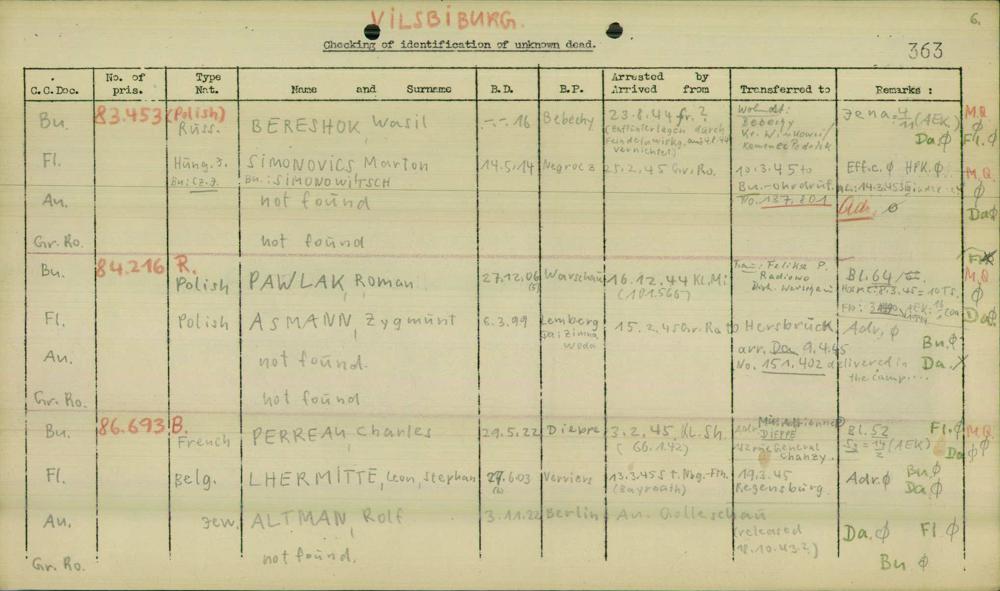 VILSBIBURG.
6.
Checking of identification of unknown dead.
363
C.C.Doc. No. of pris. Type Nat. Name and Surname B.D. B.P. Arrested Arrived by from Transferred to Remarks :
Bu. 83.453 (Polish) Russ. BERESHOK, Wasil -.-.16 Bebechy 23.8.44 fr. ? Wohnort: Bebechy Jena= (AEK) M.Q.
Da.ϕ Fl.ϕ
Fl. Hung.J. SIMONOVICS Marton 14.5.14 Negrocz 25.2.45 Gr.Ro. 10.3.45 to Eff.c.ϕ HPK.ϕ M.Q.
Bu: Cz.J. Bu.: SIMONOWITSCH Bu.-Ohrdruf. ϕ
No. 137.801 Adr. ϕ Daϕ
Au. not found
Gr.Ro. not found
Bu. 84.216 R. Polish PAWLAK, Roman 27.12.06 Warschau 16.12.44 Kl.Mi Felika P. Bl.64 M.Q.
(101566) Radiowo ϕ
Daϕ
Fl. Polish ASMANN, Zygmunt 6.3.99 Lemberg 15.2.45 Gr.Ro to Hersbrück Adr. ϕ
Da: Zimna Woda arr. Da 9.4.45 Bu.ϕ
Au. not found. No. 151.402 delivered in the camp... Da.
Gr.Ro. not found
Bu. 86.693 B. French PERREAU Charles 29.5.22 Dieppe 3.2.45, KL.Sh. DIEPPE Bl.52 Fl.ϕ M.Q.
(66.142) General Chanzy. (AEK) Da ϕ
Fl. Belg. LHERMITTE, Leon, Stephan 27.6.03 Verviers 13.3.45 St. Nbg.-Fth. 19.3.45 Adr.ϕ Bu.ϕ
(Bayreuth) Regensburg. Da.ϕ
Au. Jew. ALTMAN, Rolf 3.11.22 Berlin Au. Golleschau
(released 18.10.43?) Da.ϕ Fl.ϕ
Gr.Ro. not found. Bu.ϕ